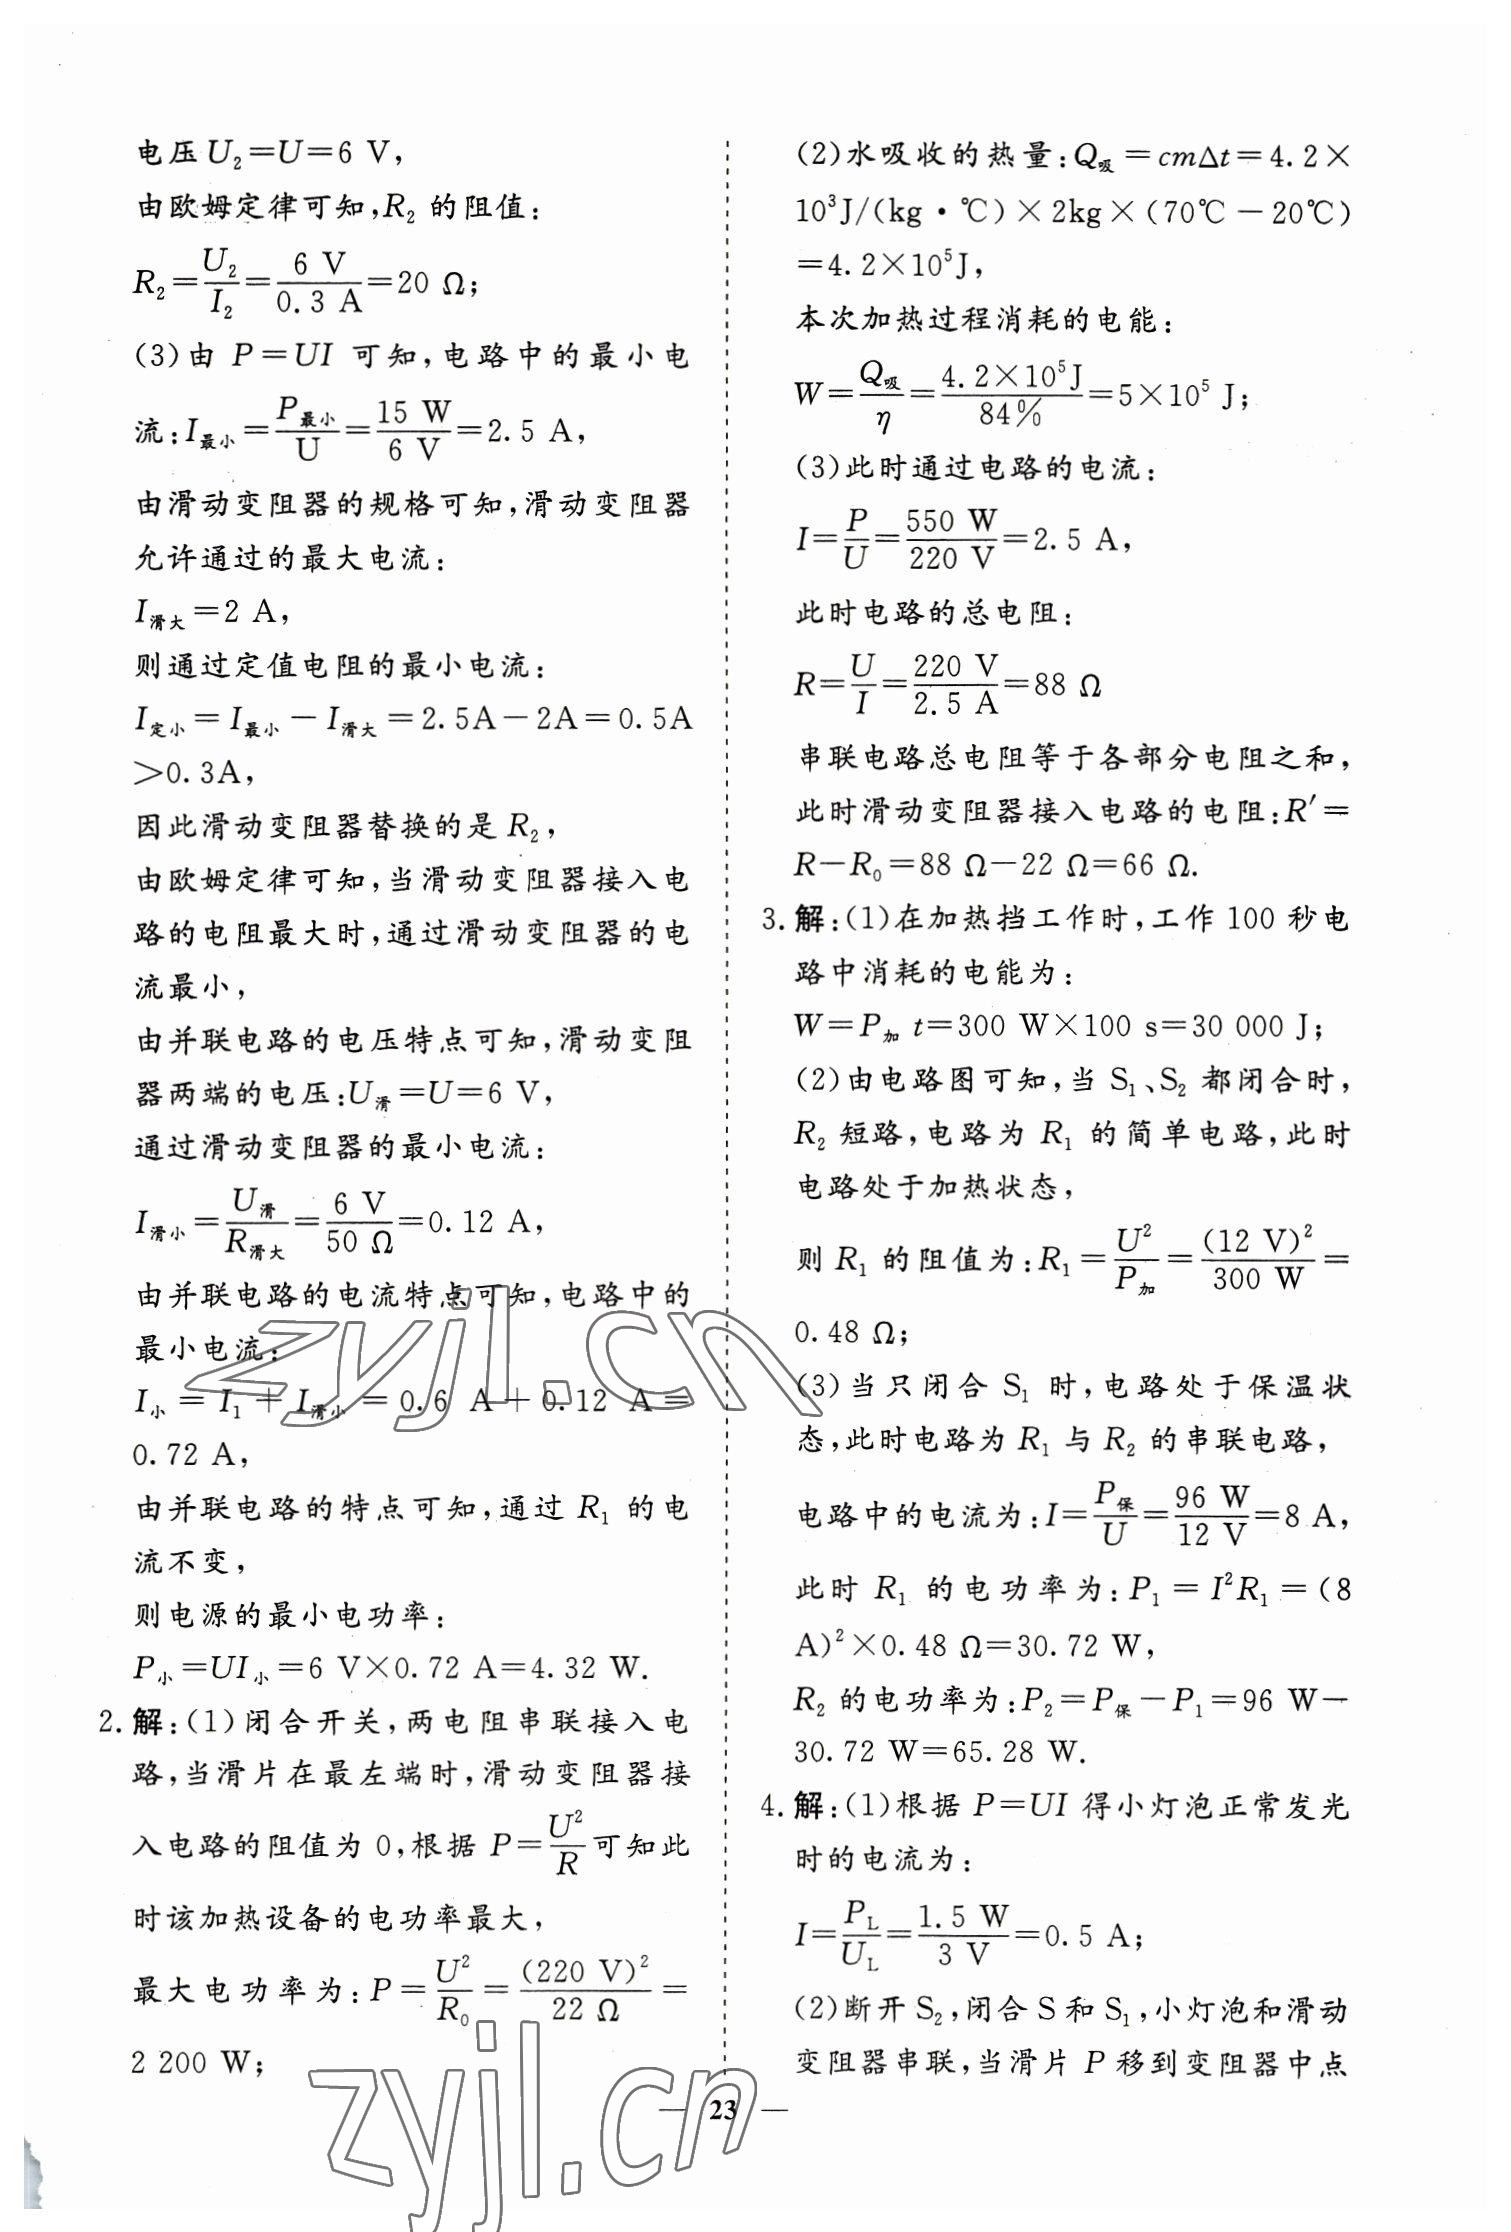 电压U₂=U=6 V,
由欧姆定律可知,R₂ 的阻值:
R₂=U₂/I₂=6 V/0.3 A=20 Ω;
(3)由 P=UI 可知,电路中的最小电
流:I最小=P最小/U=15 W/6 V=2.5 A,
由滑动变阻器的规格可知,滑动变阻器
允许通过的最大电流:
I滑大=2 A,
则通过定值电阻的最小电流:
I定小=I最小-I滑大=2.5A-2A=0.5A
>0.3A,
因此滑动变阻器替换的是 R₂,
由欧姆定律可知,当滑动变阻器接入电
路的电阻最大时,通过滑动变阻器的电
流最小,
由并联电路的电压特点可知,滑动变阻
器两端的电压:U滑=U=6 V,
通过滑动变阻器的最小电流:
I滑小=U滑/R滑大=6 V/50 Ω=0.12 A,
由并联电路的电流特点可知,电路中的
最小电流:
I小=I₁+I滑小=0.6 A+0.12 A=
0.72 A,
由并联电路的特点可知,通过 R₁ 的电
流不变,
则电源的最小电功率:
P小=UI小=6 V×0.72 A=4.32 W.
2.解:(1)闭合开关,两电阻串联接入电
路,当滑片在最左端时,滑动变阻器接
入电路的阻值为 0,根据 P=U²/R可知此
时该加热设备的电功率最大,
最大电功率为:P=U²/R₀=(220 V)²/22 Ω=
2 200 W;
(2)水吸收的热量:Q吸=cmΔt=4.2×
10³J/(kg·℃)×2kg×(70℃-20℃)
=4.2×10⁵J,
本次加热过程消耗的电能:
W=Q吸/η=4.2×10⁵J/84%=5×10⁵ J;
(3)此时通过电路的电流:
I=P/U=550 W/220 V=2.5 A,
此时电路的总电阻:
R=U/I=220 V/2.5 A=88 Ω
串联电路总电阻等于各部分电阻之和,
此时滑动变阻器接入电路的电阻:R′=
R-R₀=88 Ω-22 Ω=66 Ω.
3.解:(1)在加热挡工作时,工作 100 秒电
路中消耗的电能为:
W=P加 t=300 W×100 s=30 000 J;
(2)由电路图可知,当 S₁、S₂ 都闭合时,
R₂ 短路,电路为 R₁ 的简单电路,此时
电路处于加热状态,
则 R₁ 的阻值为:R₁=U²/P加=(12 V)²/300 W=
0.48 Ω;
(3)当只闭合 S₁ 时,电路处于保温状
态,此时电路为 R₁ 与 R₂ 的串联电路,
电路中的电流为:I=P保/U=96 W/12 V=8 A,
此时 R₁ 的电功率为:P₁=I²R₁=(8
A)²×0.48 Ω=30.72 W,
R₂ 的电功率为:P₂=P保-P₁=96 W-
30.72 W=65.28 W.
4.解:(1)根据 P=UI 得小灯泡正常发光
时的电流为:
I=P_L/U_L=1.5 W/3 V=0.5 A;
(2)断开 S₂,闭合 S 和 S₁,小灯泡和滑动
变阻器串联,当滑片 P 移到变阻器中点
— 23 —
zyjl.cn
zyjl.cn